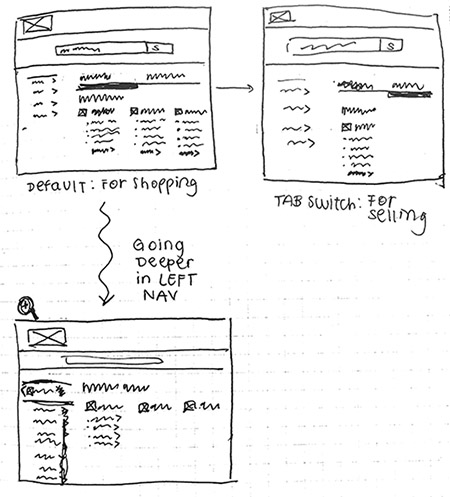 S
S
Default: For Shopping
TAB Switch: For
selling
Going
Deeper
in LEFT
NAV